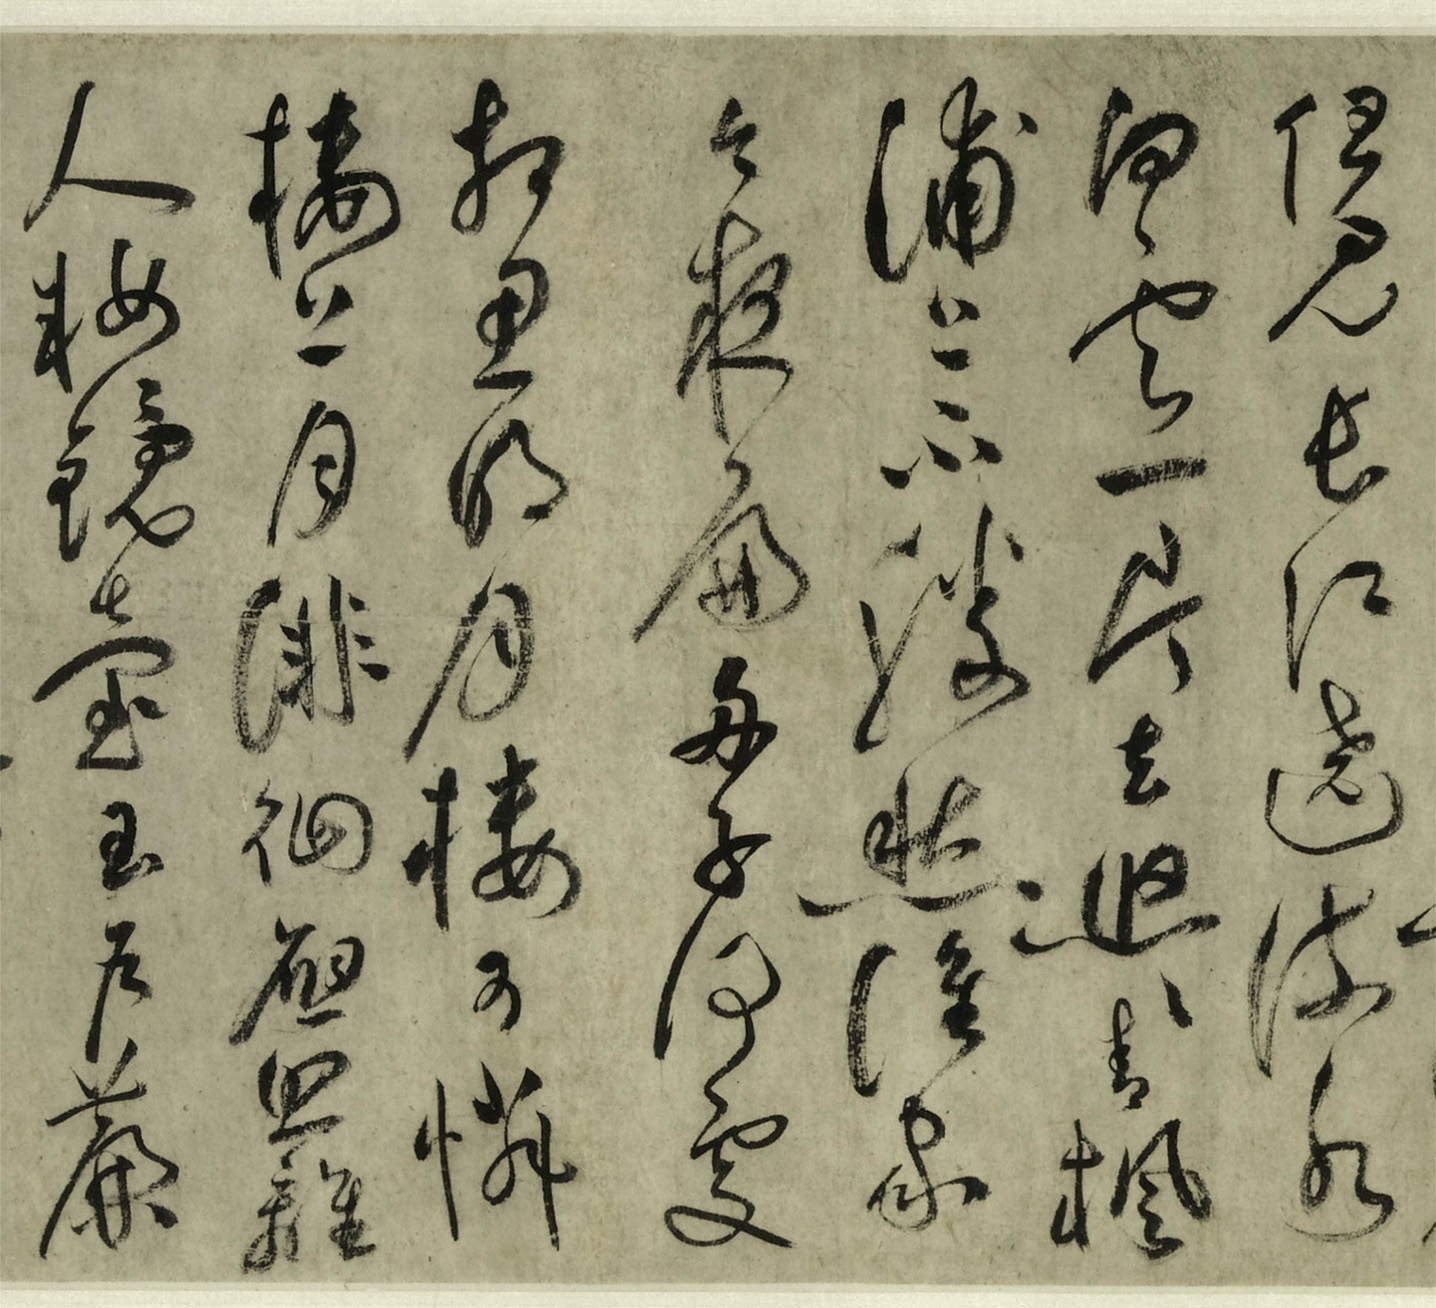 但見長江流水
白雲一片去悠々青楓
浦上不勝愁誰家
今夜扁舟子何處
相思明月樓可憐
樓上月徘徊應照離
人妝鏡臺玉戶簾